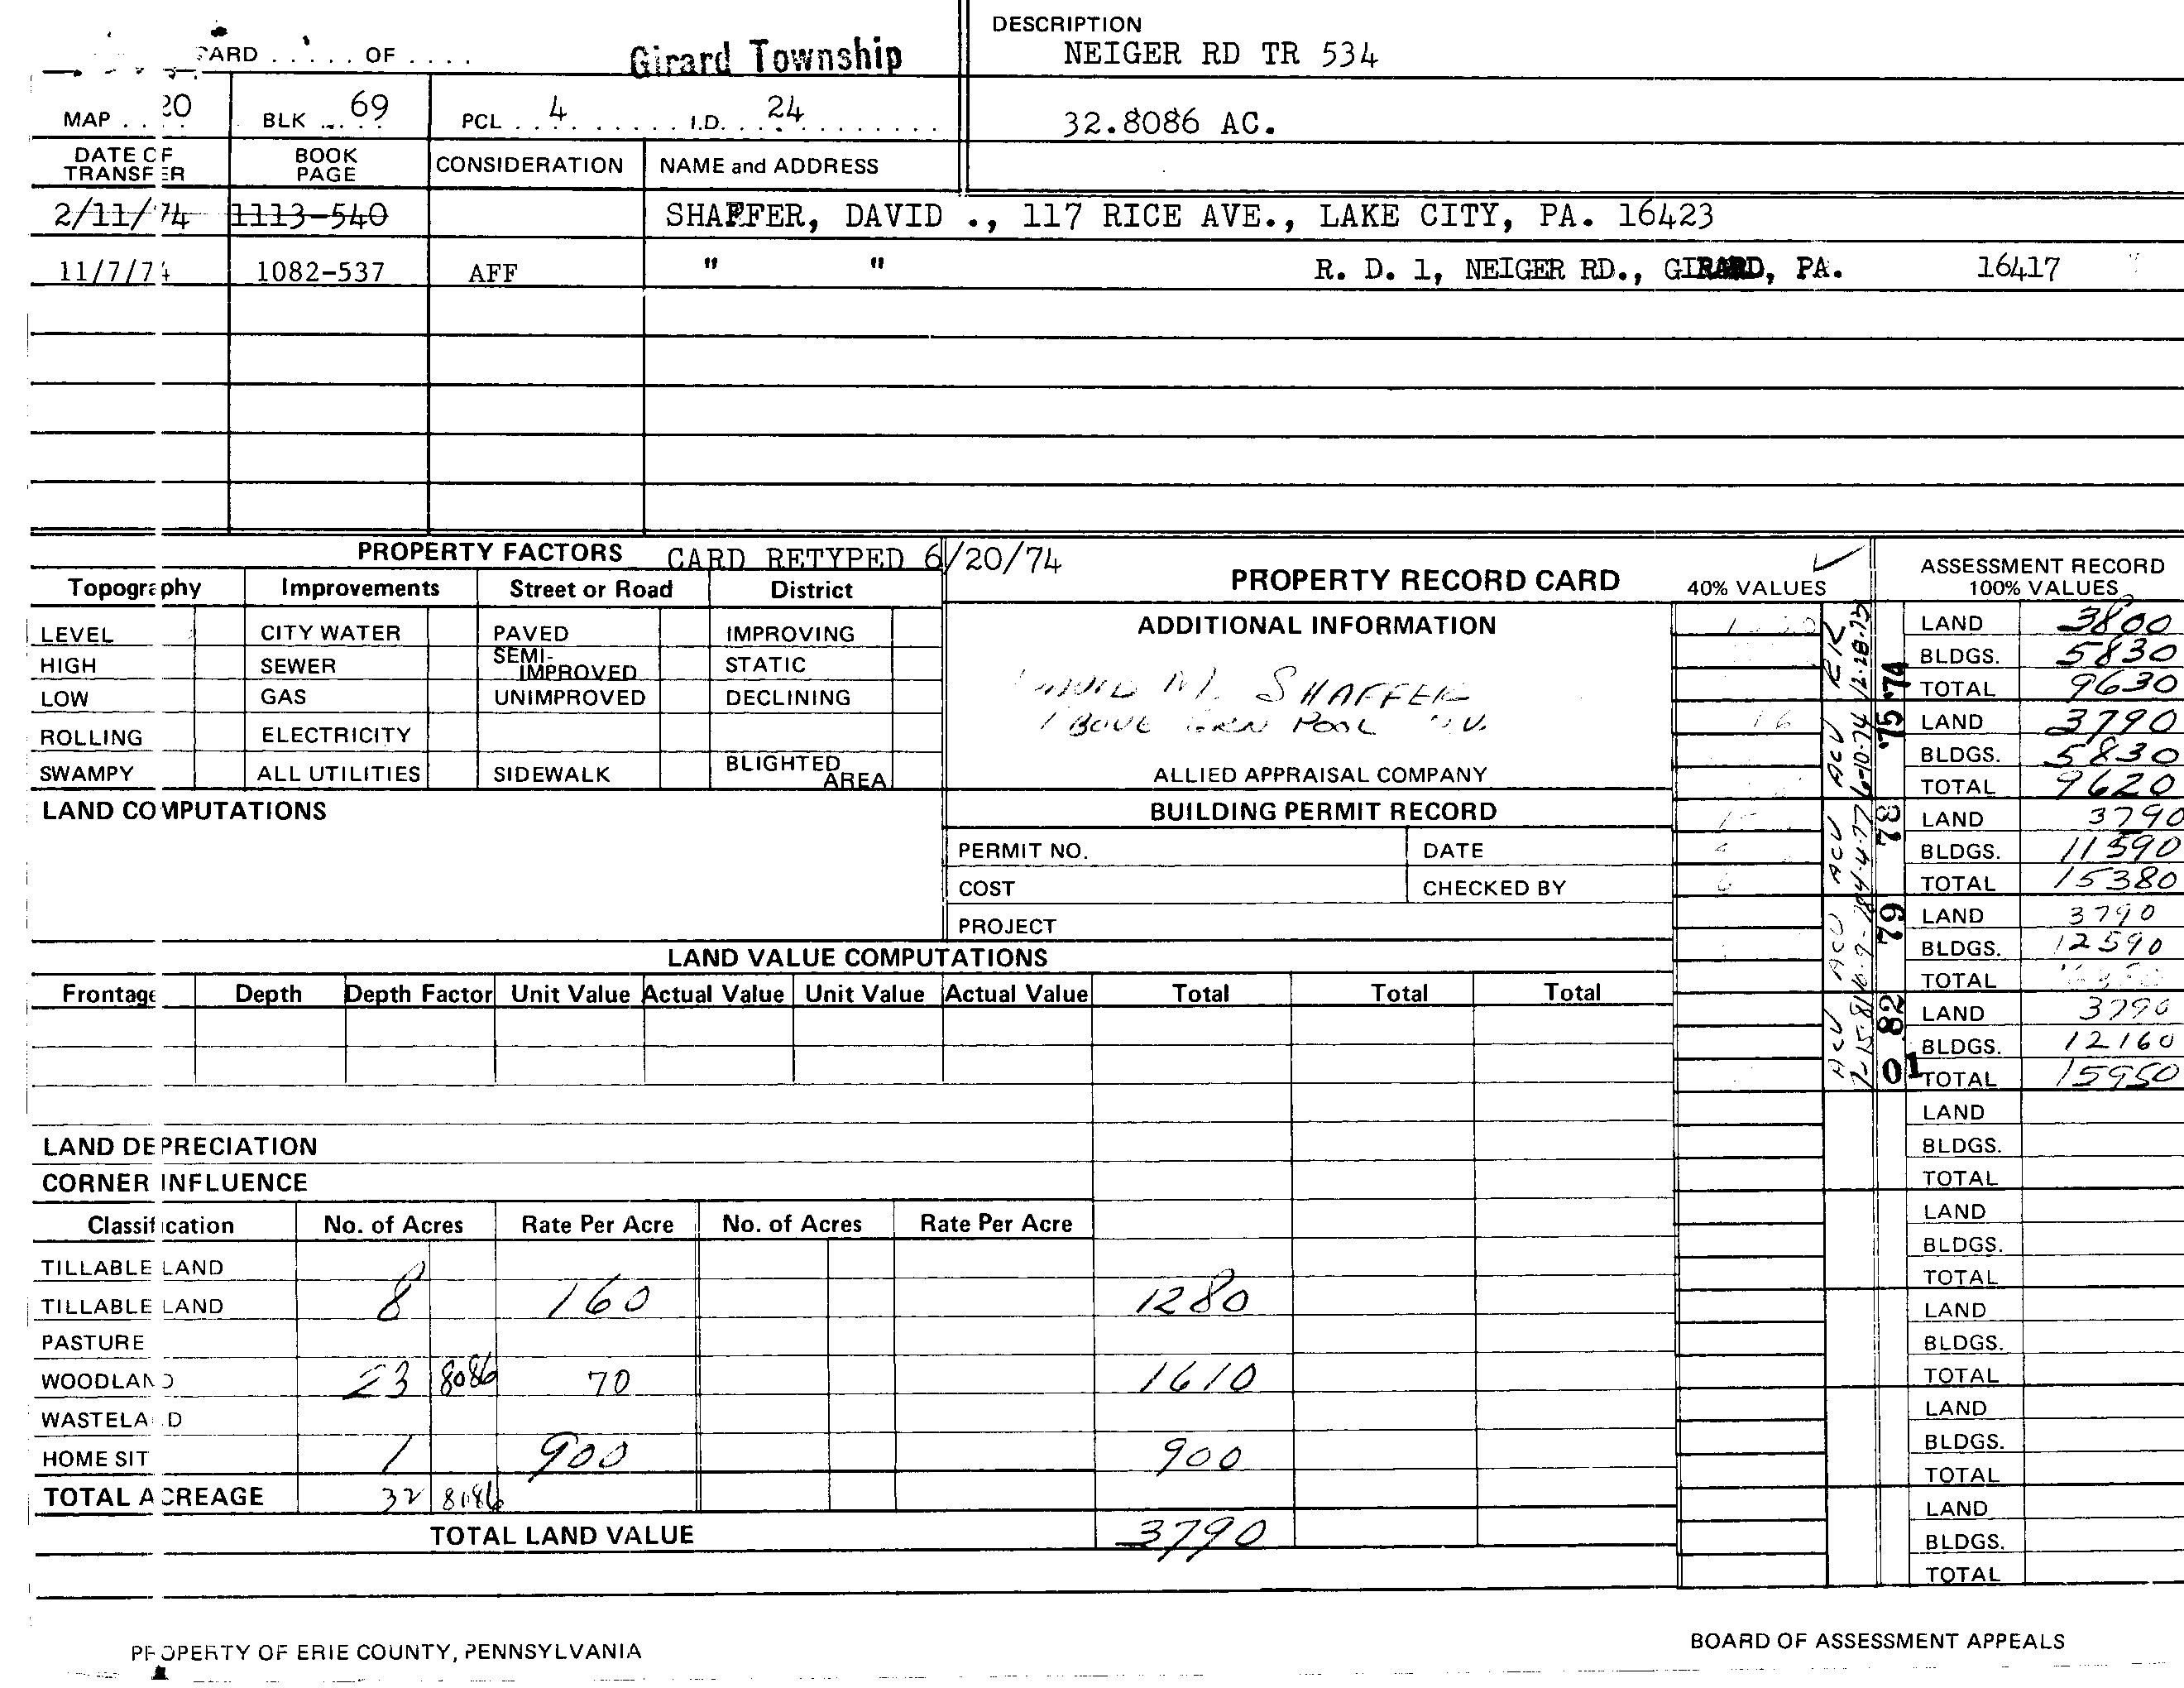 CARD . . . . . OF . . . .
Girard Township
DESCRIPTION
NEIGER RD TR 534
MAP . . 20 BLK . . . 69 PCL . . 4 . . . . . I.D. . . 24
32.8086 AC.
DATE OF TRANSFER BOOK PAGE CONSIDERATION NAME and ADDRESS
2/11/74 1113-540 SHAFFER, DAVID ., 117 RICE AVE., LAKE CITY, PA. 16423
11/7/74 1082-537 AFF " " R. D. 1, NEIGER RD., GIRARD, PA. 16417
PROPERTY FACTORS CARD RETYPED 6/20/74
Topography Improvements Street or Road District
LEVEL CITY WATER PAVED IMPROVING
HIGH SEWER SEMI-IMPROVED STATIC
LOW GAS UNIMPROVED DECLINING
ROLLING ELECTRICITY
SWAMPY ALL UTILITIES SIDEWALK BLIGHTED AREA
PROPERTY RECORD CARD
ADDITIONAL INFORMATION
M. SHAFFER
ALLIED APPRAISAL COMPANY
BUILDING PERMIT RECORD
PERMIT NO. DATE
COST CHECKED BY
PROJECT
40% VALUES
RK 12-28-72
ACV 6-10-74
ACV 4-4-77
ACV
ACV 7-15-81
ASSESSMENT RECORD
100% VALUES
LAND 3800
BLDGS. 5830
TOTAL 9630
74
75
LAND 3790
BLDGS. 5830
TOTAL 9620
78
LAND 3790
BLDGS. 11590
TOTAL 15380
79
LAND 3790
BLDGS. 12590
TOTAL
82
LAND 3790
BLDGS. 12160
01
TOTAL 15950
LAND
BLDGS.
TOTAL
LAND
BLDGS.
TOTAL
LAND
BLDGS.
TOTAL
LAND
BLDGS.
TOTAL
LAND
BLDGS.
TOTAL
LAND COMPUTATIONS
LAND VALUE COMPUTATIONS
Frontage Depth Depth Factor Unit Value Actual Value Unit Value Actual Value Total Total Total
LAND DEPRECIATION
CORNER INFLUENCE
Classification No. of Acres Rate Per Acre No. of Acres Rate Per Acre
TILLABLE LAND
TILLABLE LAND 8 160 1280
PASTURE
WOODLAND 23 8086 70 1610
WASTELAND
HOME SIT 1 900 900
TOTAL ACREAGE 32 8086
TOTAL LAND VALUE 3790
PROPERTY OF ERIE COUNTY, PENNSYLVANIA
BOARD OF ASSESSMENT APPEALS